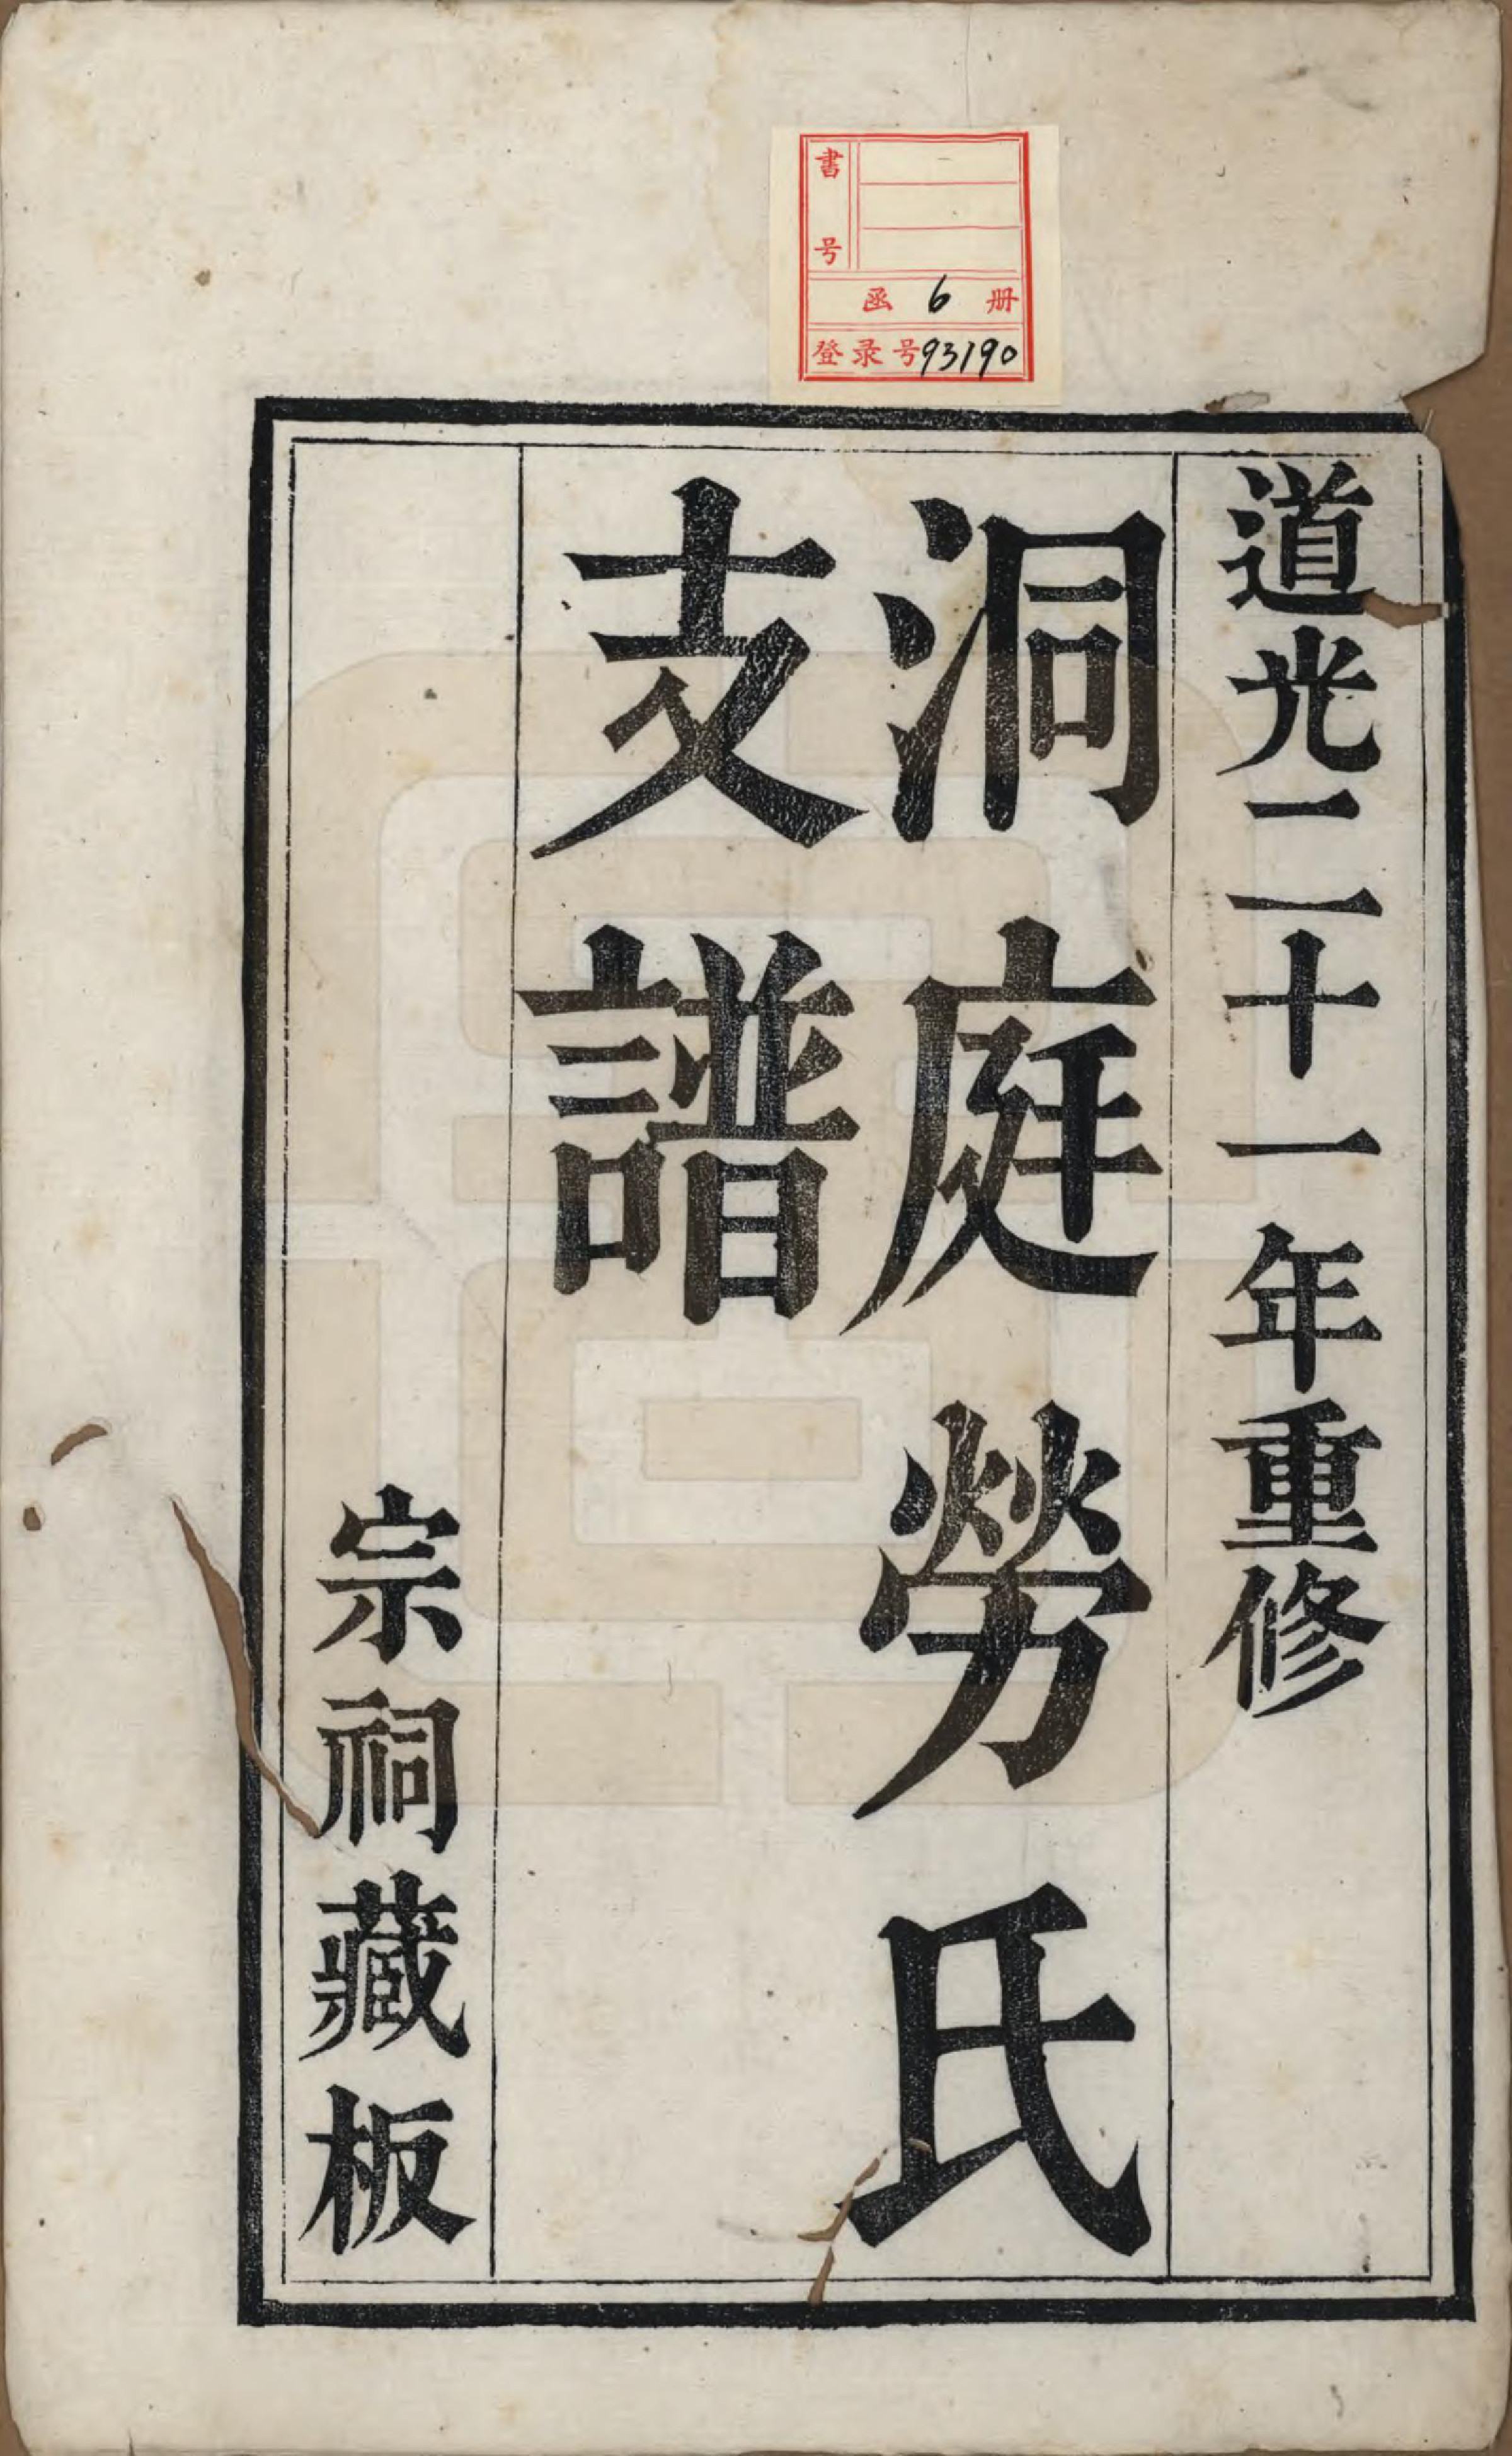 書号
函 6 册
登录号93190
道光二十一年重修
洞庭勞氏
支譜
宗祠藏板